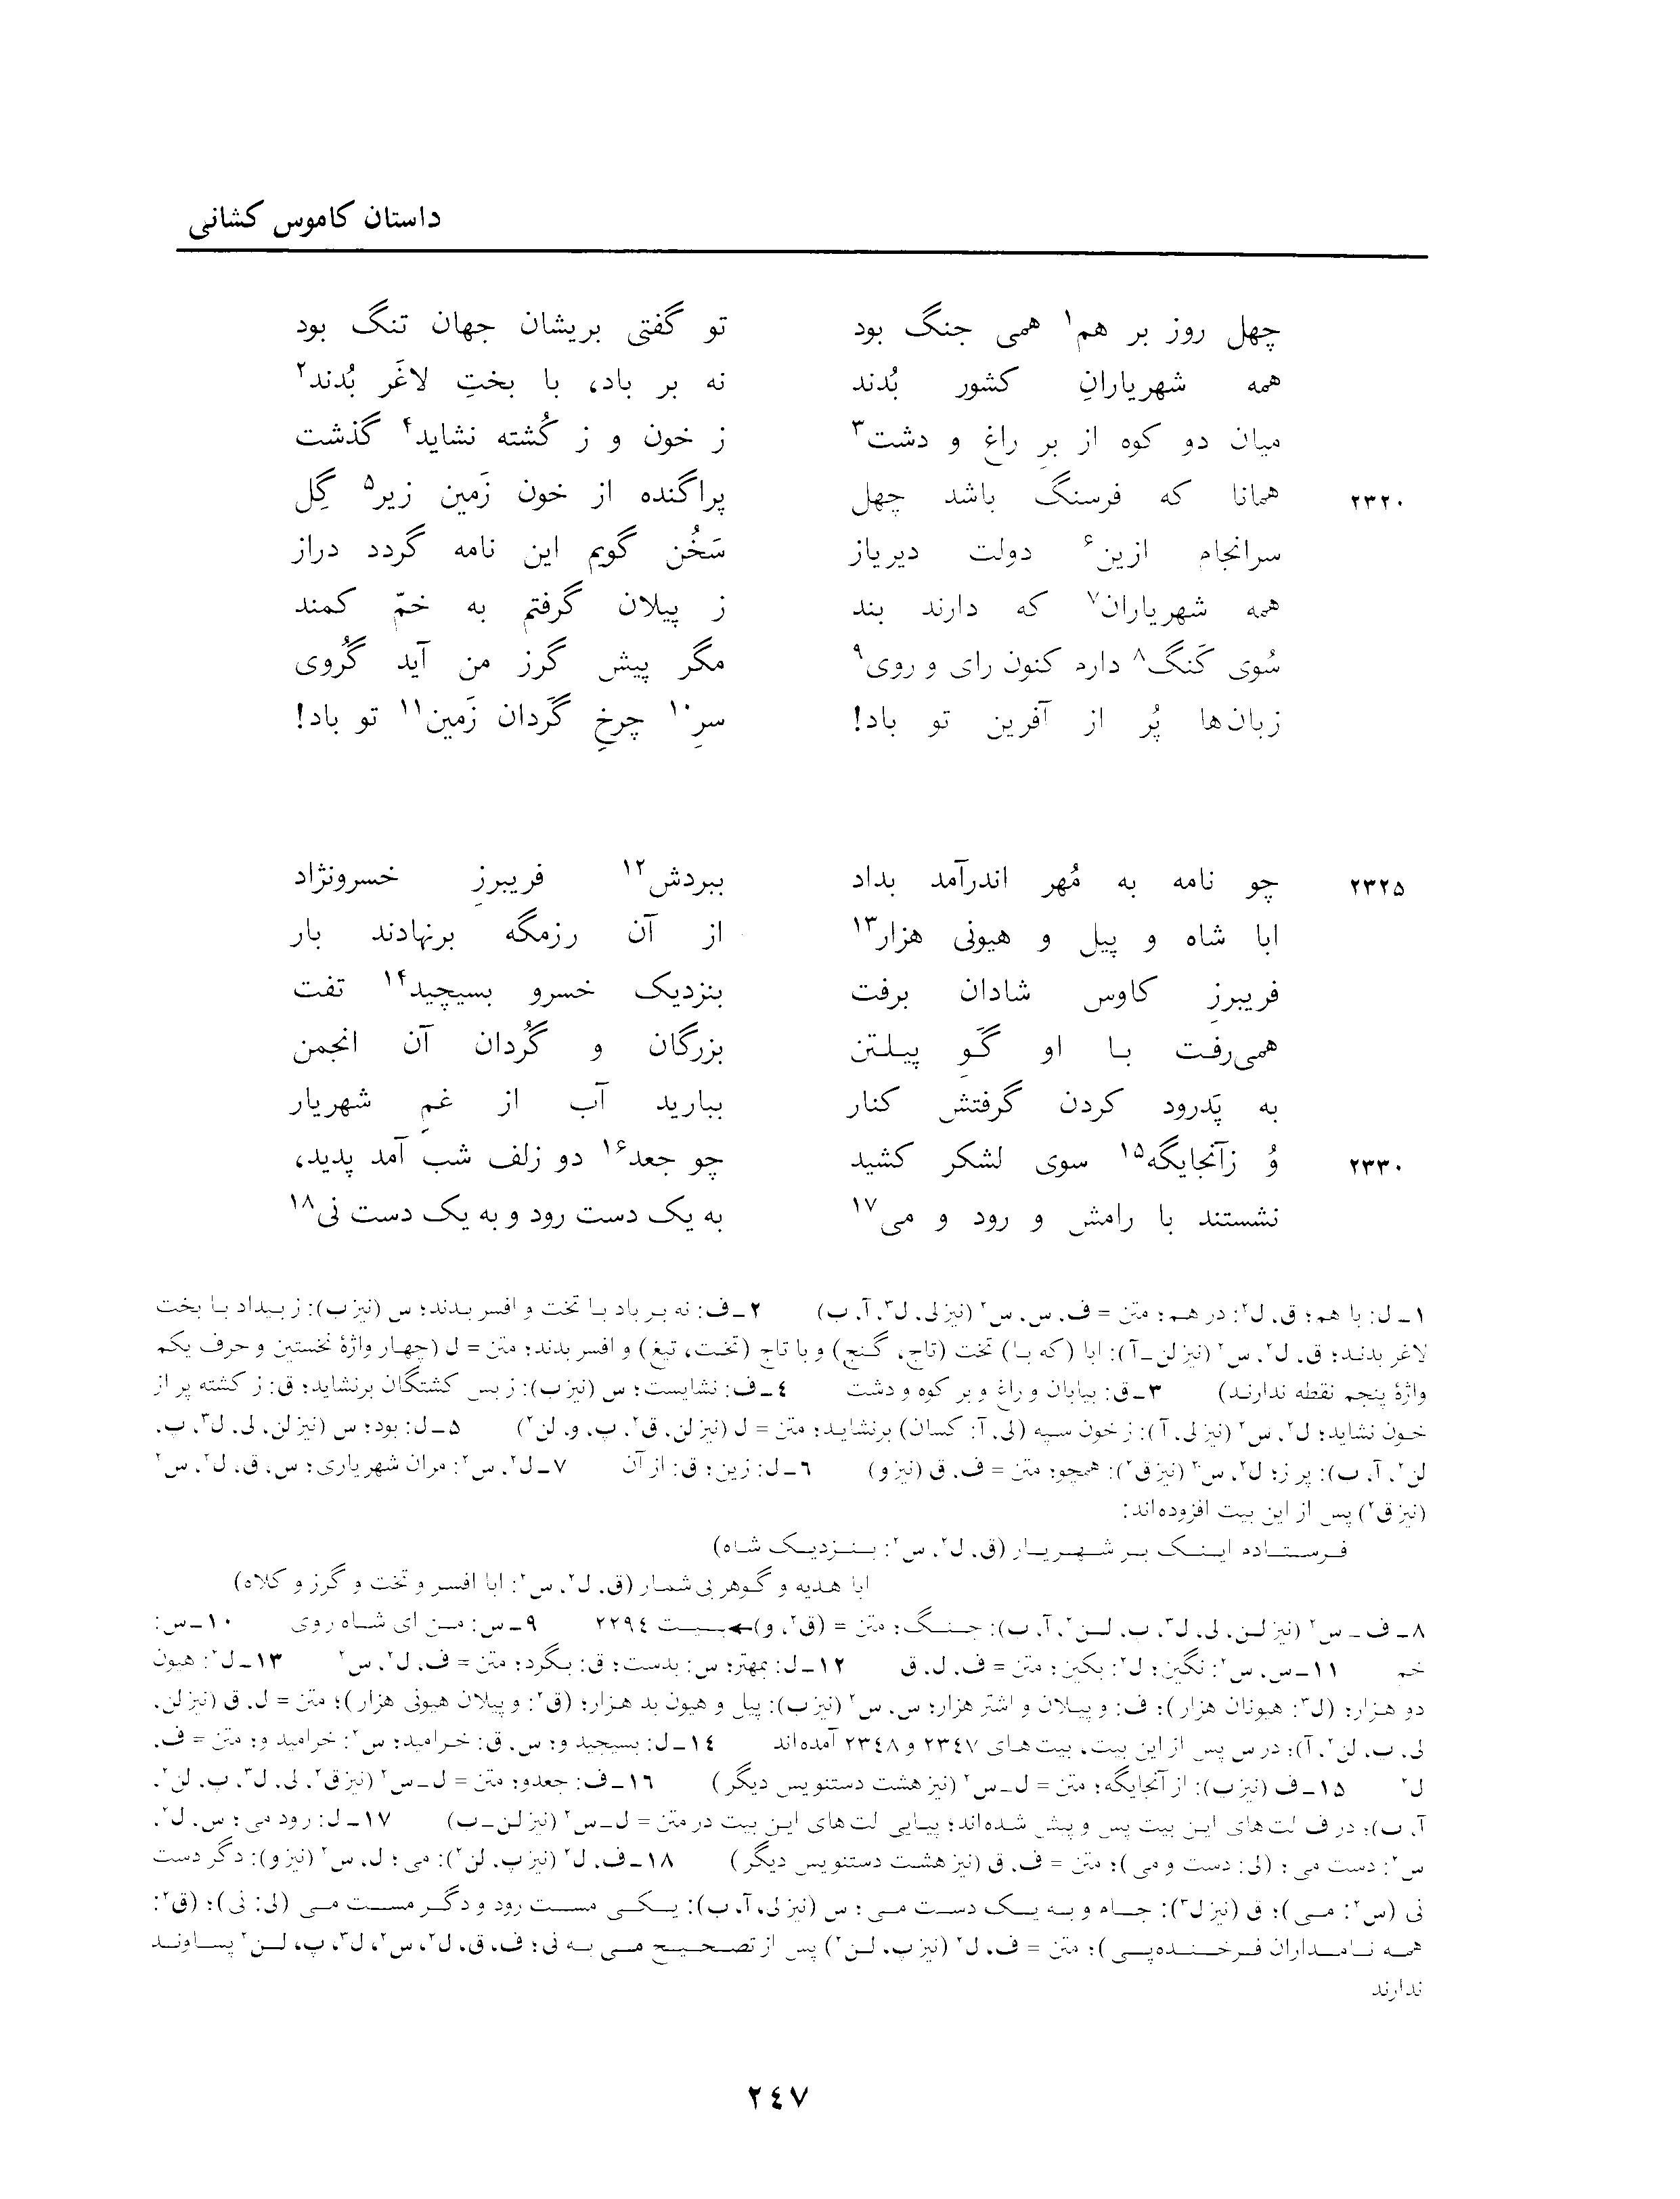 داستان کاموس کشانی
چهل روز بر هم۱ همی جنگ بود تو گفتی بریشان جهان تنگ بود
همه شهریارانِ کشور بُدند نه بر باد، با بختِ لاغَر بُدند۲
میان دو کوه از برِ راغ و دشت۳ ز خون و ز کُشته نشاید۴ گذشت
۲۳۲۰ همانا که فرسنگ باشد چهل پراگنده از خون زَمین زیر۵ گِل
سرانجام ازین۶ دولت دیریاز سَخُن گویم این نامه گردد دراز
همه شهریاران۷ که دارند بند ز پیلان گرفتم به خمّ کمند
سُوی کَنگ۸ دارم کنون رای و روی۹ مگر پیش گرز من آید گُروی
زبان‌ها پُر از آفرین تو باد! سرِ۱۰ چرخِ گَردان زَمین۱۱ تو باد!
۲۳۲۵ چو نامه به مُهر اندرآمد بداد ببردش۱۲ فریبرزِ خسرونژاد
ابا شاه و پیل و هیونی هزار۱۳ از آن رزمگه برنهادند بار
فریبرزِ کاوس شادان برفت بنزدیک خسرو بسیچید۱۴ تفت
همی‌رفت با او گَوِ پیلتن بزرگان و گُردان آن انجمن
به پَدرود کردن گرفتش کنار ببارید آب از غمِ شهریار
۲۳۳۰ وُ زآنجایگه۱۵ سوی لشکر کشید چو جعد۱۶ دو زلف شب آمد پدید،
نشستند با رامش و رود و می۱۷ به یک دست رود و به یک دست نی۱۸
۱ـ ل: با هم؛ ق، ل۲: در هم؛ متن = ف، س، س۲ (نیز لی، ل۳، آ، ب) ۲ـ ف: نه بر باد با تخت و افسر بدند؛ س (نیز ب): ز بیداد با بخت
لاغر بدند؛ ق، ل۲، س۲ (نیز لن ـ آ): ابا (که با) تخت (تاج، گنج) و با تاج (تخت، تیغ) و افسر بدند؛ متن = ل (چهار واژهٔ نخستین و حرف یکم
واژهٔ پنجم نقطه ندارند) ۳ـ ق: بیابان و راغ و بر کوه و دشت ٤ـ ف: نشایست؛ س (نیز ب): ز بس کشتگان برنشاید؛ ق: ز کشته پر از
خون نشاید؛ ل۲، س۲ (نیز لی، آ): ز خون سپه (لی، آ: کسان) برنشاید؛ متن = ل (نیز لن، ق۲، پ، و، لن۲) ۵ـ ل: بود؛ س (نیز لن، لی، ل۳، پ،
لن۲، آ، ب): پر ز؛ ل۲، س۲ (نیز ق۲): همچو؛ متن = ف، ق (نیز و) ٦ـ ل: زین؛ ق: از آن ۷ـ ل۲، س۲: مران شهریاری؛ س، ق، ل۲، س۲
(نیز ق۲) پس از این بیت افزوده‌اند:
فرستاده اینک بر شهریار (ق، ل۲، س۲: بنزدیک شاه)
ابا هدیه و گوهر بی‌شمار (ق، ل۲، س۲: ابا افسر و تخت و گرز و کلاه)
۸ـ ف ـ س۲ (نیز لن، لی، ل۳، پ، لن۲، آ، ب): جنگ؛ متن = (ق۲، و)← بیت ۲۲۹٤ ۹ـ س: من ای شاه روی ۱۰ـ س:
خم ۱۱ـ س، س۲: نگین؛ ل۲: بکین؛ متن = ف، ل، ق ۱۲ـ ل: بمهتر؛ س: بدست؛ ق: بگرد؛ متن = ف، ل۲، س۲ ۱۳ـ ل۲: هیون
دو هزار؛ (ل۳: هیونان هزار)؛ ف: و پیلان و اشتر هزار؛ س، س۲ (نیز ب): پیل و هیون بد هزار؛ (ق۲: و پیلان هیونی هزار)؛ متن = ل، ق (نیز لن،
لی، پ، لن۲، آ)؛ در س پس از این بیت، بیت‌های ۲۳٤۷ و ۲۳٤۸ آمده‌اند ۱٤ـ ل: بسیجید و؛ س، ق: خرامید؛ س۲: خرامید و؛ متن = ف،
ل۲ ۱۵ـ ف (نیز ب): از آنجایگه؛ متن = ل ـ س۲ (نیز هشت دستنویس دیگر) ۱٦ـ ف: جعدو؛ متن = ل ـ س۲ (نیز ق۲، لی، ل۳، پ، لن۲،
آ، ب)؛ در ف لت‌های این بیت پس و پیش شده‌اند؛ پیاپی لت‌های این بیت در متن = ل ـ س۲ (نیز لن ـ ب) ۱۷ـ ل: رود می؛ س، ل۲،
س۲: دست می؛ (لی: دست و می)؛ متن = ف، ق (نیز هشت دستنویس دیگر) ۱۸ـ ف، ل۲ (نیز پ، لن۲): می؛ ل، س۲ (نیز و): دگر دست
نی (س۲: می)؛ ق (نیز ل۳): جام و به یک دست می؛ س (نیز لی، آ، ب): یکی مست رود و دگر مست می (لی: نی)؛ (ق۲:
همه نامداران فرخنده‌پی)؛ متن = ف، ل۲ (نیز پ، لن۲) پس از تصحیح می به نی؛ ف، ق، ل۲، س۲، ل۳، پ، لن۲ پساوند
ندارند
۲٤۷